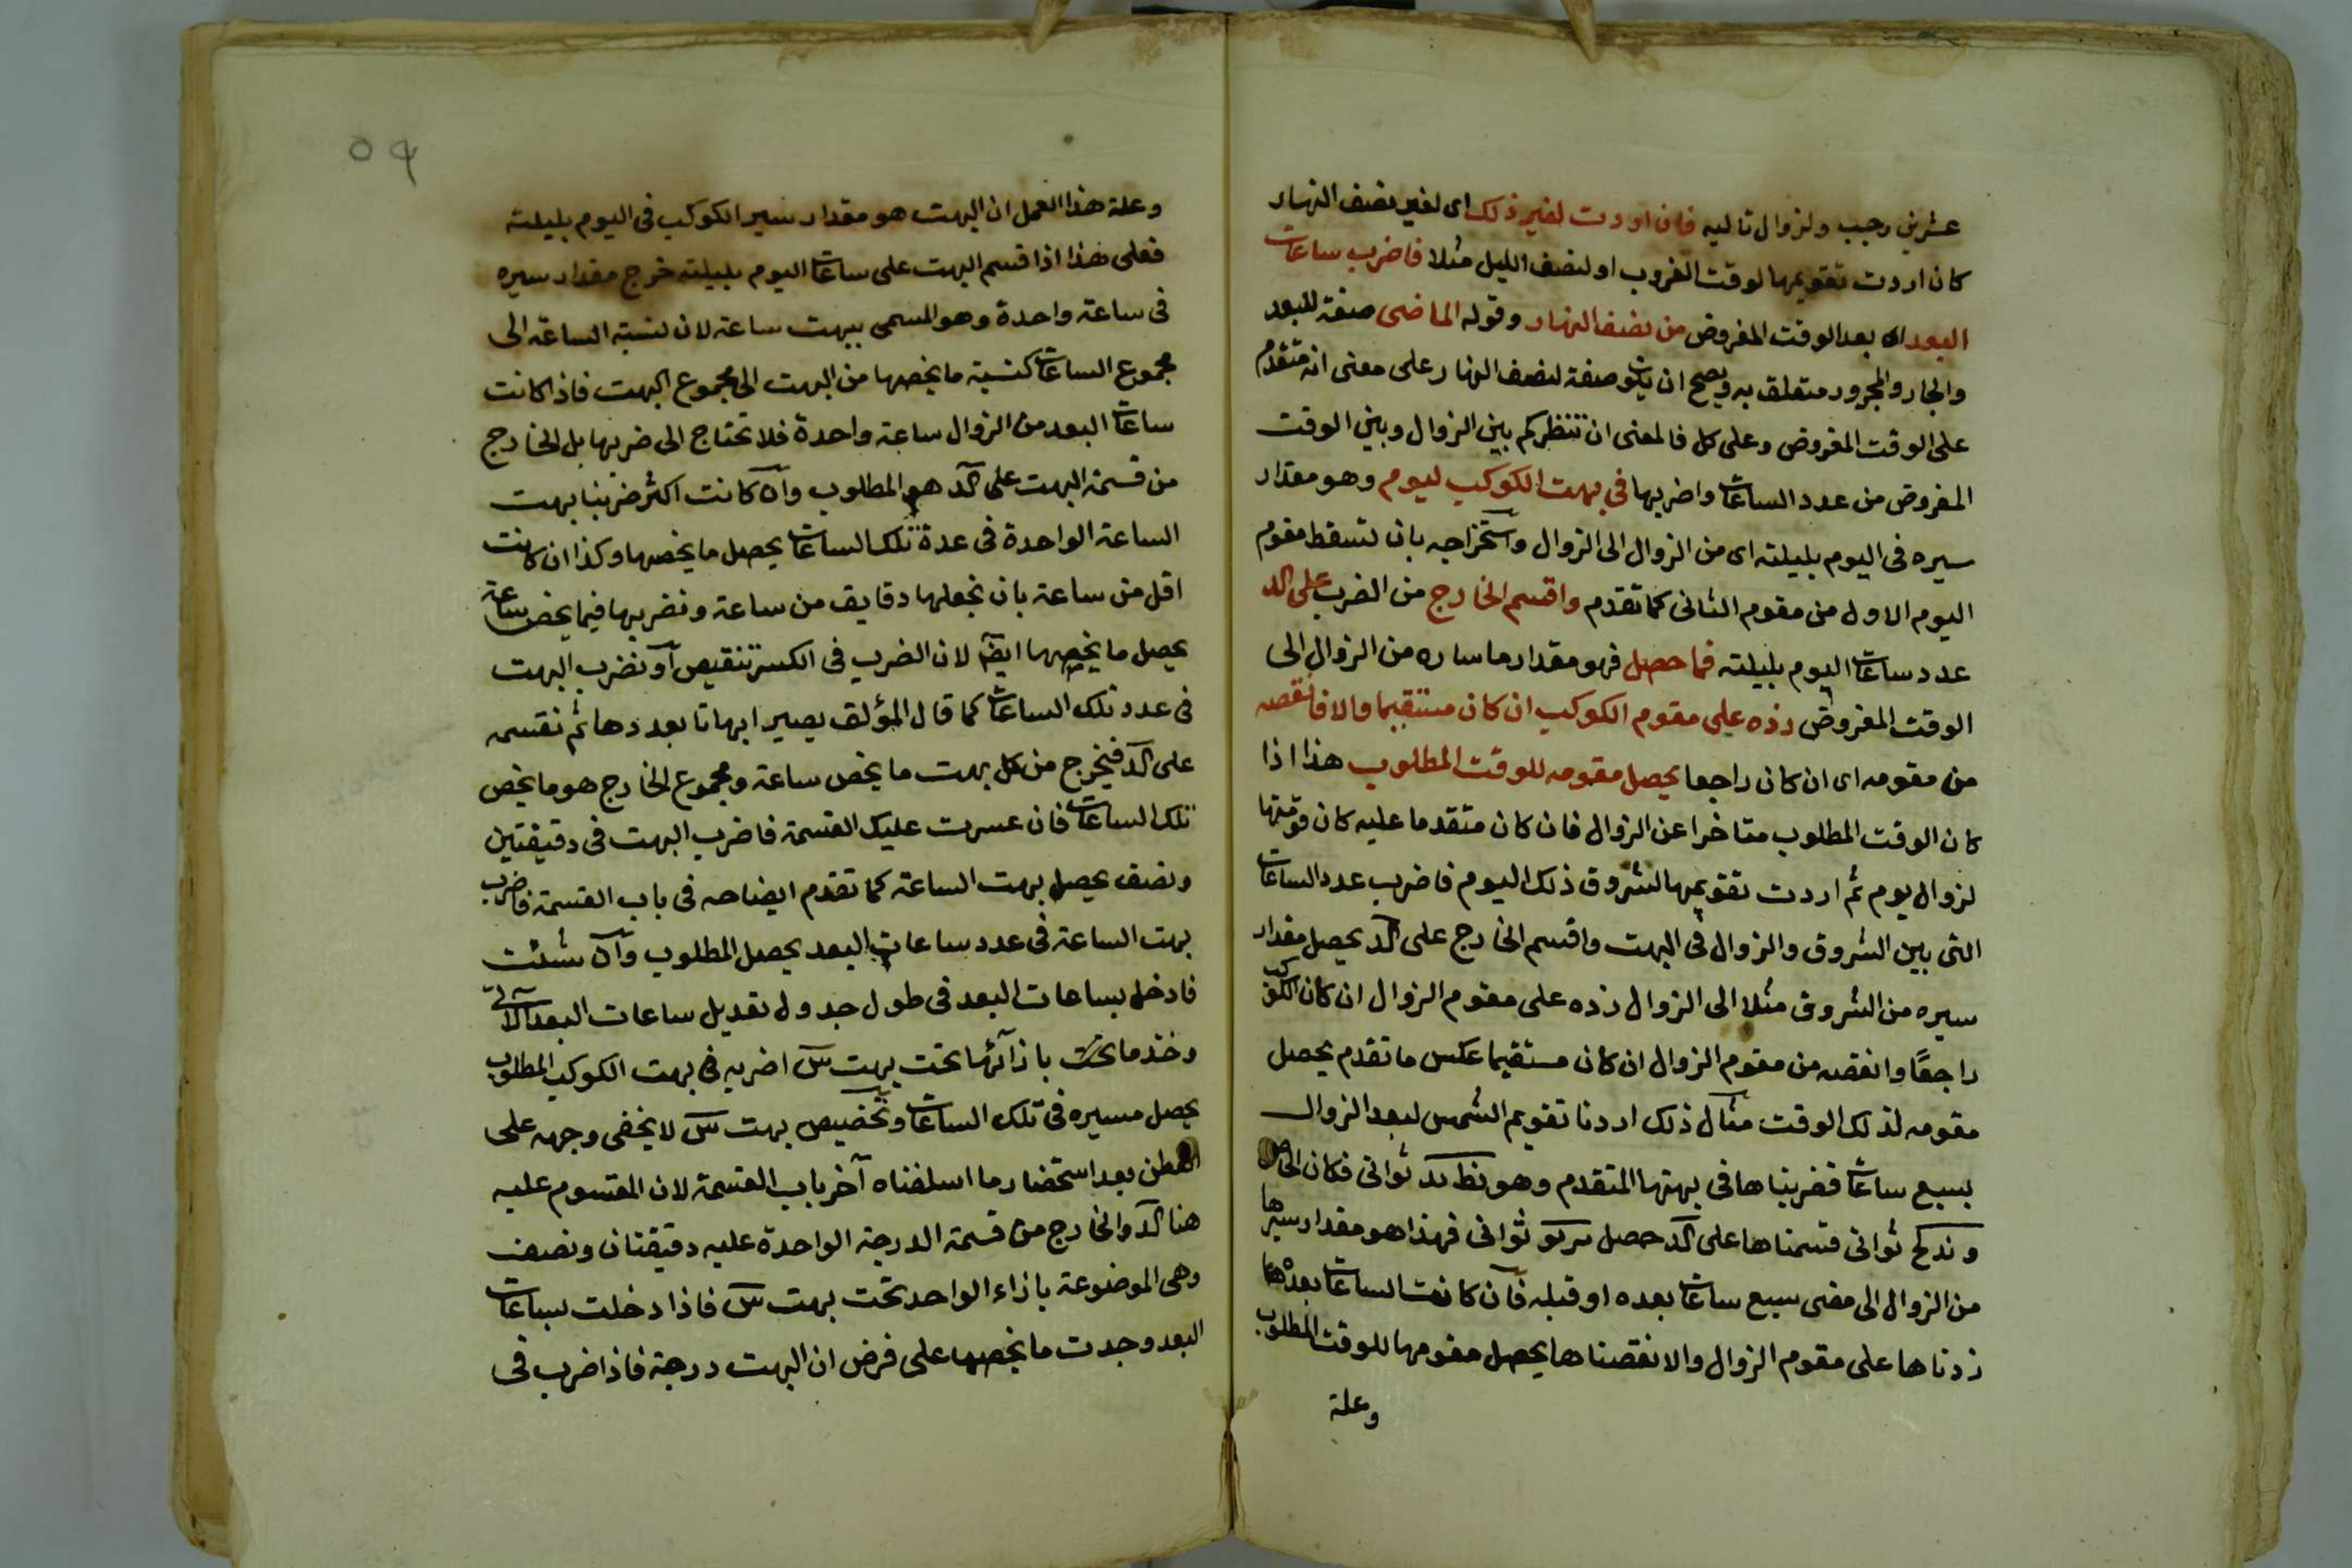 عشرين رجب ولزوال تاليه فان اردت لغير ذلك اى لغير نصف النهار
كان اردت تقويمها لوقت الغروب او لنصف الليل مثلا فاضرب ساعات
البعد اى بعد الوقت المفروض من نصف النهار وقوله الماضى صفة للبعد
والجار والمجرور متعلق به ويصح ان يكون صفة لنصف النهار على معنى انه متقدم
على الوقت المفروض وعلى كل فالمعنى ان تنظر كم بين الزوال وبين الوقت
المفروض من عدد الساعات واضربها فى بهت الكوكب ليوم وهو مقدار
سيره فى اليوم بليلته اى من الزوال الى الزوال واستخراجه بان تسقط مقوم
اليوم الاول من مقوم الثانى كما تقدم واقسم الخارج من الضرب على كد
عدد ساعات اليوم بليلته فما حصل فهو مقدار ما ساره من الزوال الى
الوقت المفروض زده على مقوم الكوكب ان كان مستقيما والا فانقصه
من مقومه اى ان كان راجعا يحصل مقومه للوقت المطلوب هذا اذا
كان الوقت المطلوب متاخرا عن الزوال فان كان متقدما عليه كان قومتها
لزوال يوم ثم اردت تقويمها لشروق ذلك اليوم فاضرب عدد الساعات
التى بين الشروق والزوال فى البهت واقسم الخارج على كد يحصل مقدار
سيره من الشروق مثلا الى الزوال زده على مقوم الزوال ان كان الكوكب
راجعًا وانقصه من مقوم الزوال ان كان مستقيما عكس ما تقدم يحصل
مقومه لذلك الوقت مثال ذلك اردنا تقويم الشمس لبعد الزوال
بسبع ساعات فضربناها فى بهتها المتقدم وهو نط ثوانى فكان الحاصل
و ند كح ثوانى قسمناها على كد حصل ثوانى فهذا هو مقدار سيرها
من الزوال الى مضى سبع ساعات بعده او قبله فان كانت الساعات بعدها
زدناها على مقوم الزوال والا نقصناها يحصل مقومها للوقت المطلوب
وعلة
٥٩
وعلة هذا العمل ان البهت هو مقدار سير الكوكب فى اليوم بليلته
فعلى هذا اذا قسم البهت على ساعات اليوم بليلته خرج مقدار سيره
فى ساعة واحدة وهو المسمى ببهت ساعة لان نسبة الساعة الى
مجموع الساعات كنسبة ما يخصها من البهت الى مجموع البهت فاذا كانت
ساعات البعد من الزوال ساعة واحدة فلا تحتاج الى ضربها بل الخارج
من قسمة البهت على كد هو المطلوب وان كانت اكثر ضربنا بهت
الساعة الواحدة فى عدة تلك الساعات يحصل ما يخصها وكذا ان كانت
اقل من ساعة بان نجعلها دقايق من ساعة ونضربها فيما يخص ساعة
يحصل ما يخصها ايضا لان الضرب فى الكسر تنقيص او نضرب البهت
فى عدد تلك الساعات كما قال المؤلف يصير ابهاتا بعددها ثم نقسمه
على كد فيخرج من كل بهت ما يخص ساعة ومجموع الخارج هو ما يخص
تلك الساعات فان عسرت عليك القسمة فاضرب البهت فى دقيقتين
ونصف يحصل بهت الساعة كما تقدم ايضاحه فى باب القسمة فاضرب
بهت الساعة فى عدد ساعات البعد يحصل المطلوب وان شئت
فادخل بساعات البعد فى طول جدول تعديل ساعات البعد الاتى
وخذ ما تحت بازائها تحت بهت س اضربه فى بهت الكوكب المطلوب
يحصل مسيره فى تلك الساعات وتخصيص بهت س لا يخفى وجهه على
الفطن بعد استحضار ما اسلفناه آخر باب القسمة لان المقسوم عليه
هنا كد والخارج من قسمة الدرجة الواحدة عليه دقيقتان ونصف
وهى الموضوعة بازاء الواحد تحت بهت س فاذا دخلت بساعات
البعد وجدت ما يخصها على فرض ان البهت درجة فاذا ضرب فى